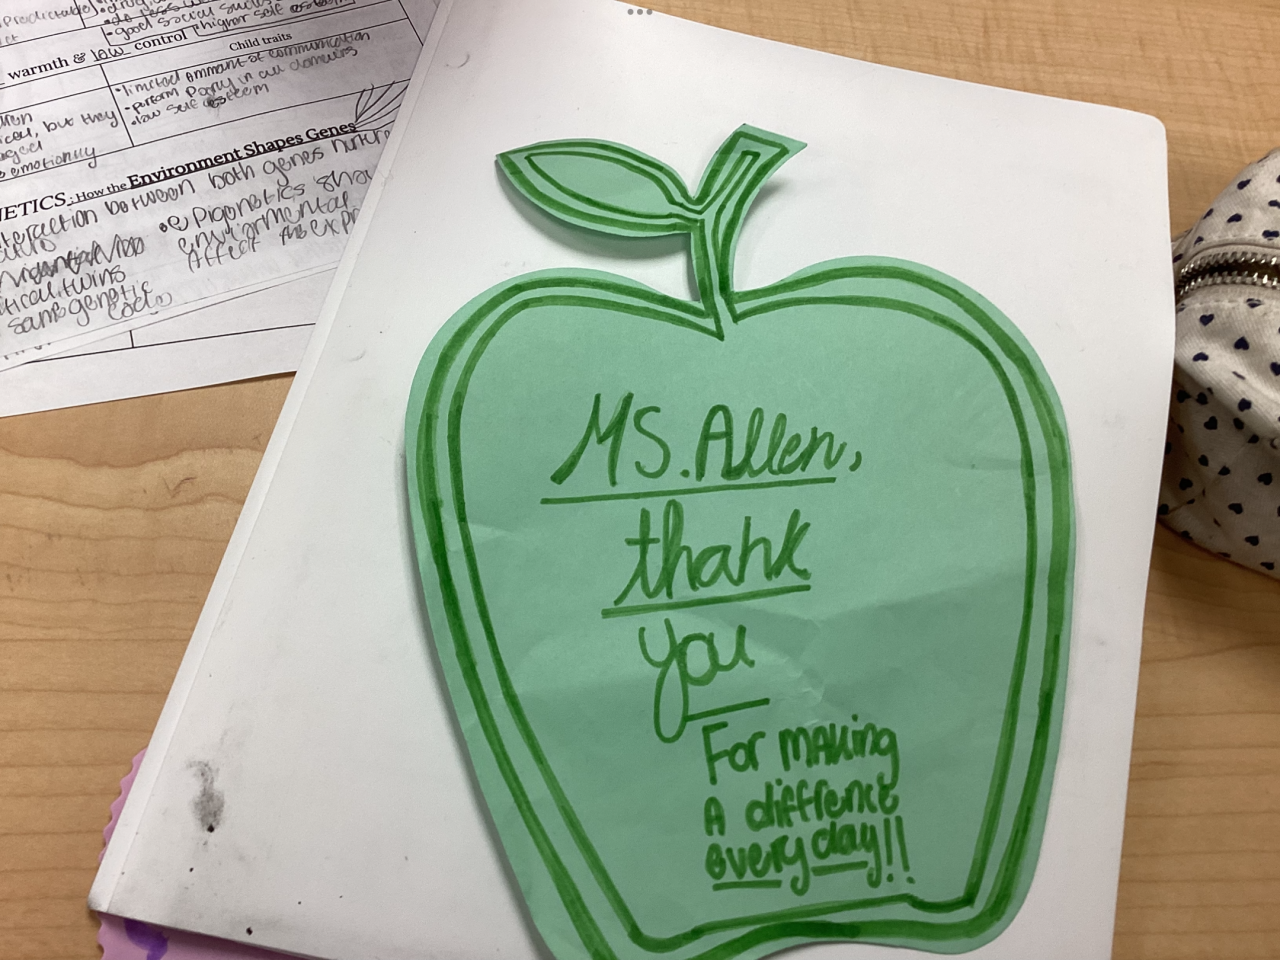 Predictable
good social
higher self
warmth & low control
Child traits
•limited ammant of communication
•perform poorly in all domains
•low self esteem
but they
emotionally
How the Environment Shapes Genes
interaction between both genes nurture
•epigenetics
environmental
Affect the
twins
same genetic
code
Ms. Allen,
thank
you
For making
A diffrence
every day!!